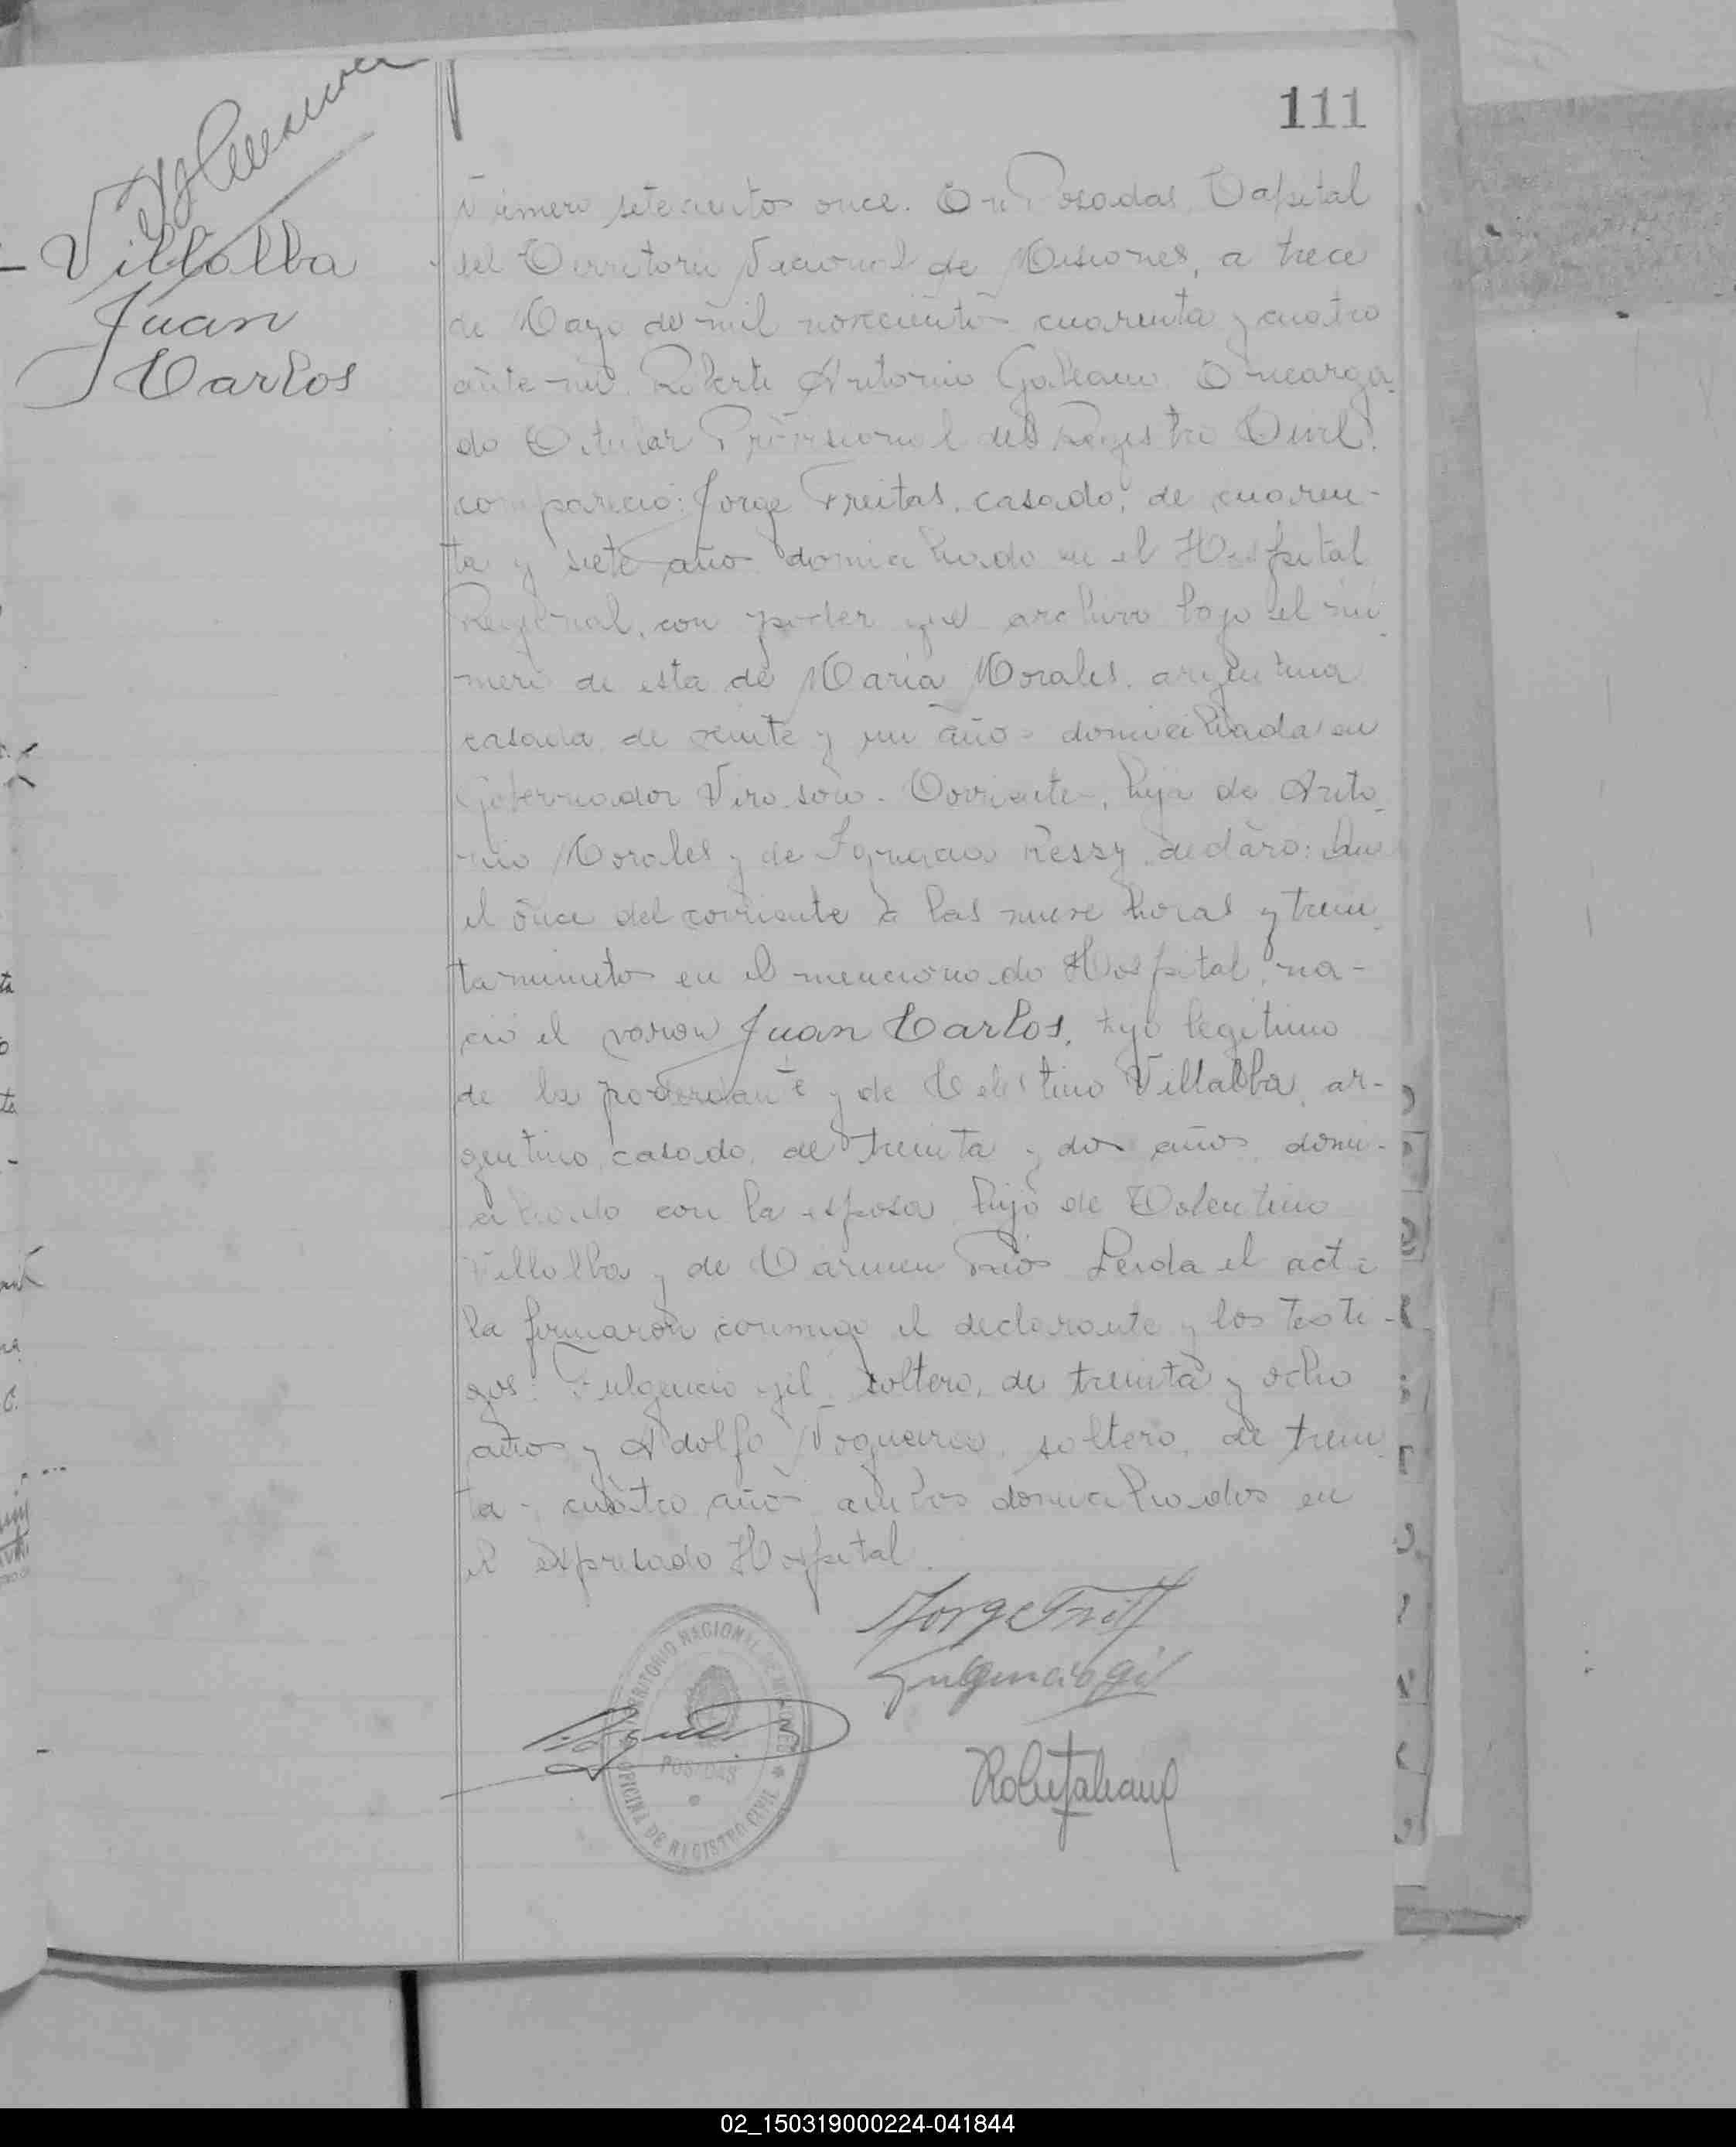 111
Villalba
Juan
Carlos
Número setecientos once. En Posadas, Capital
del Territorio Nacional de Misiones, a trece
de Mayo de mil novecientos cuarenta y cuatro
ante mi Roberto Antonio Galeano Encarga-
do Titular Provisional del Registro Civil.
compareció: Jorge Freitas, casado, de cuaren-
ta y siete años domiciliado en el Hospital
Regional, con poder que archivo bajo el nú-
mero de esta de Maria Morales, argentina
casada de veinte y un años domiciliada en
Gobernador Virasoro - Corrientes, hija de Anto-
nio Morales y de Ignacia declaró: Que
el once del corriente a las nueve horas y trein-
ta minutos en el mencionado Hospital, na-
ció el varon Juan Carlos, hijo legitimo
de la poderdante y de Celestino Villalba, ar-
gentino, casado, de treinta y dos años, domi-
ciliado con la esposa hijo de Valentino
Villalba y de Carmen Rios Leida el acta
la firmaron conmigo el declarante y los testi-
gos: Fulgencio gil, soltero, de treinta y ocho
años y Adolfo Nogueira, soltero, de trein-
ta y cuatro años ambos domiciliados en
el expresado Hospital.
Jorge
Fulgencio gil
TERRITORIO NACIONAL DE MISIONES
POSADAS
OFICINA DE REGISTRO CIVIL
02_150319000224-041844